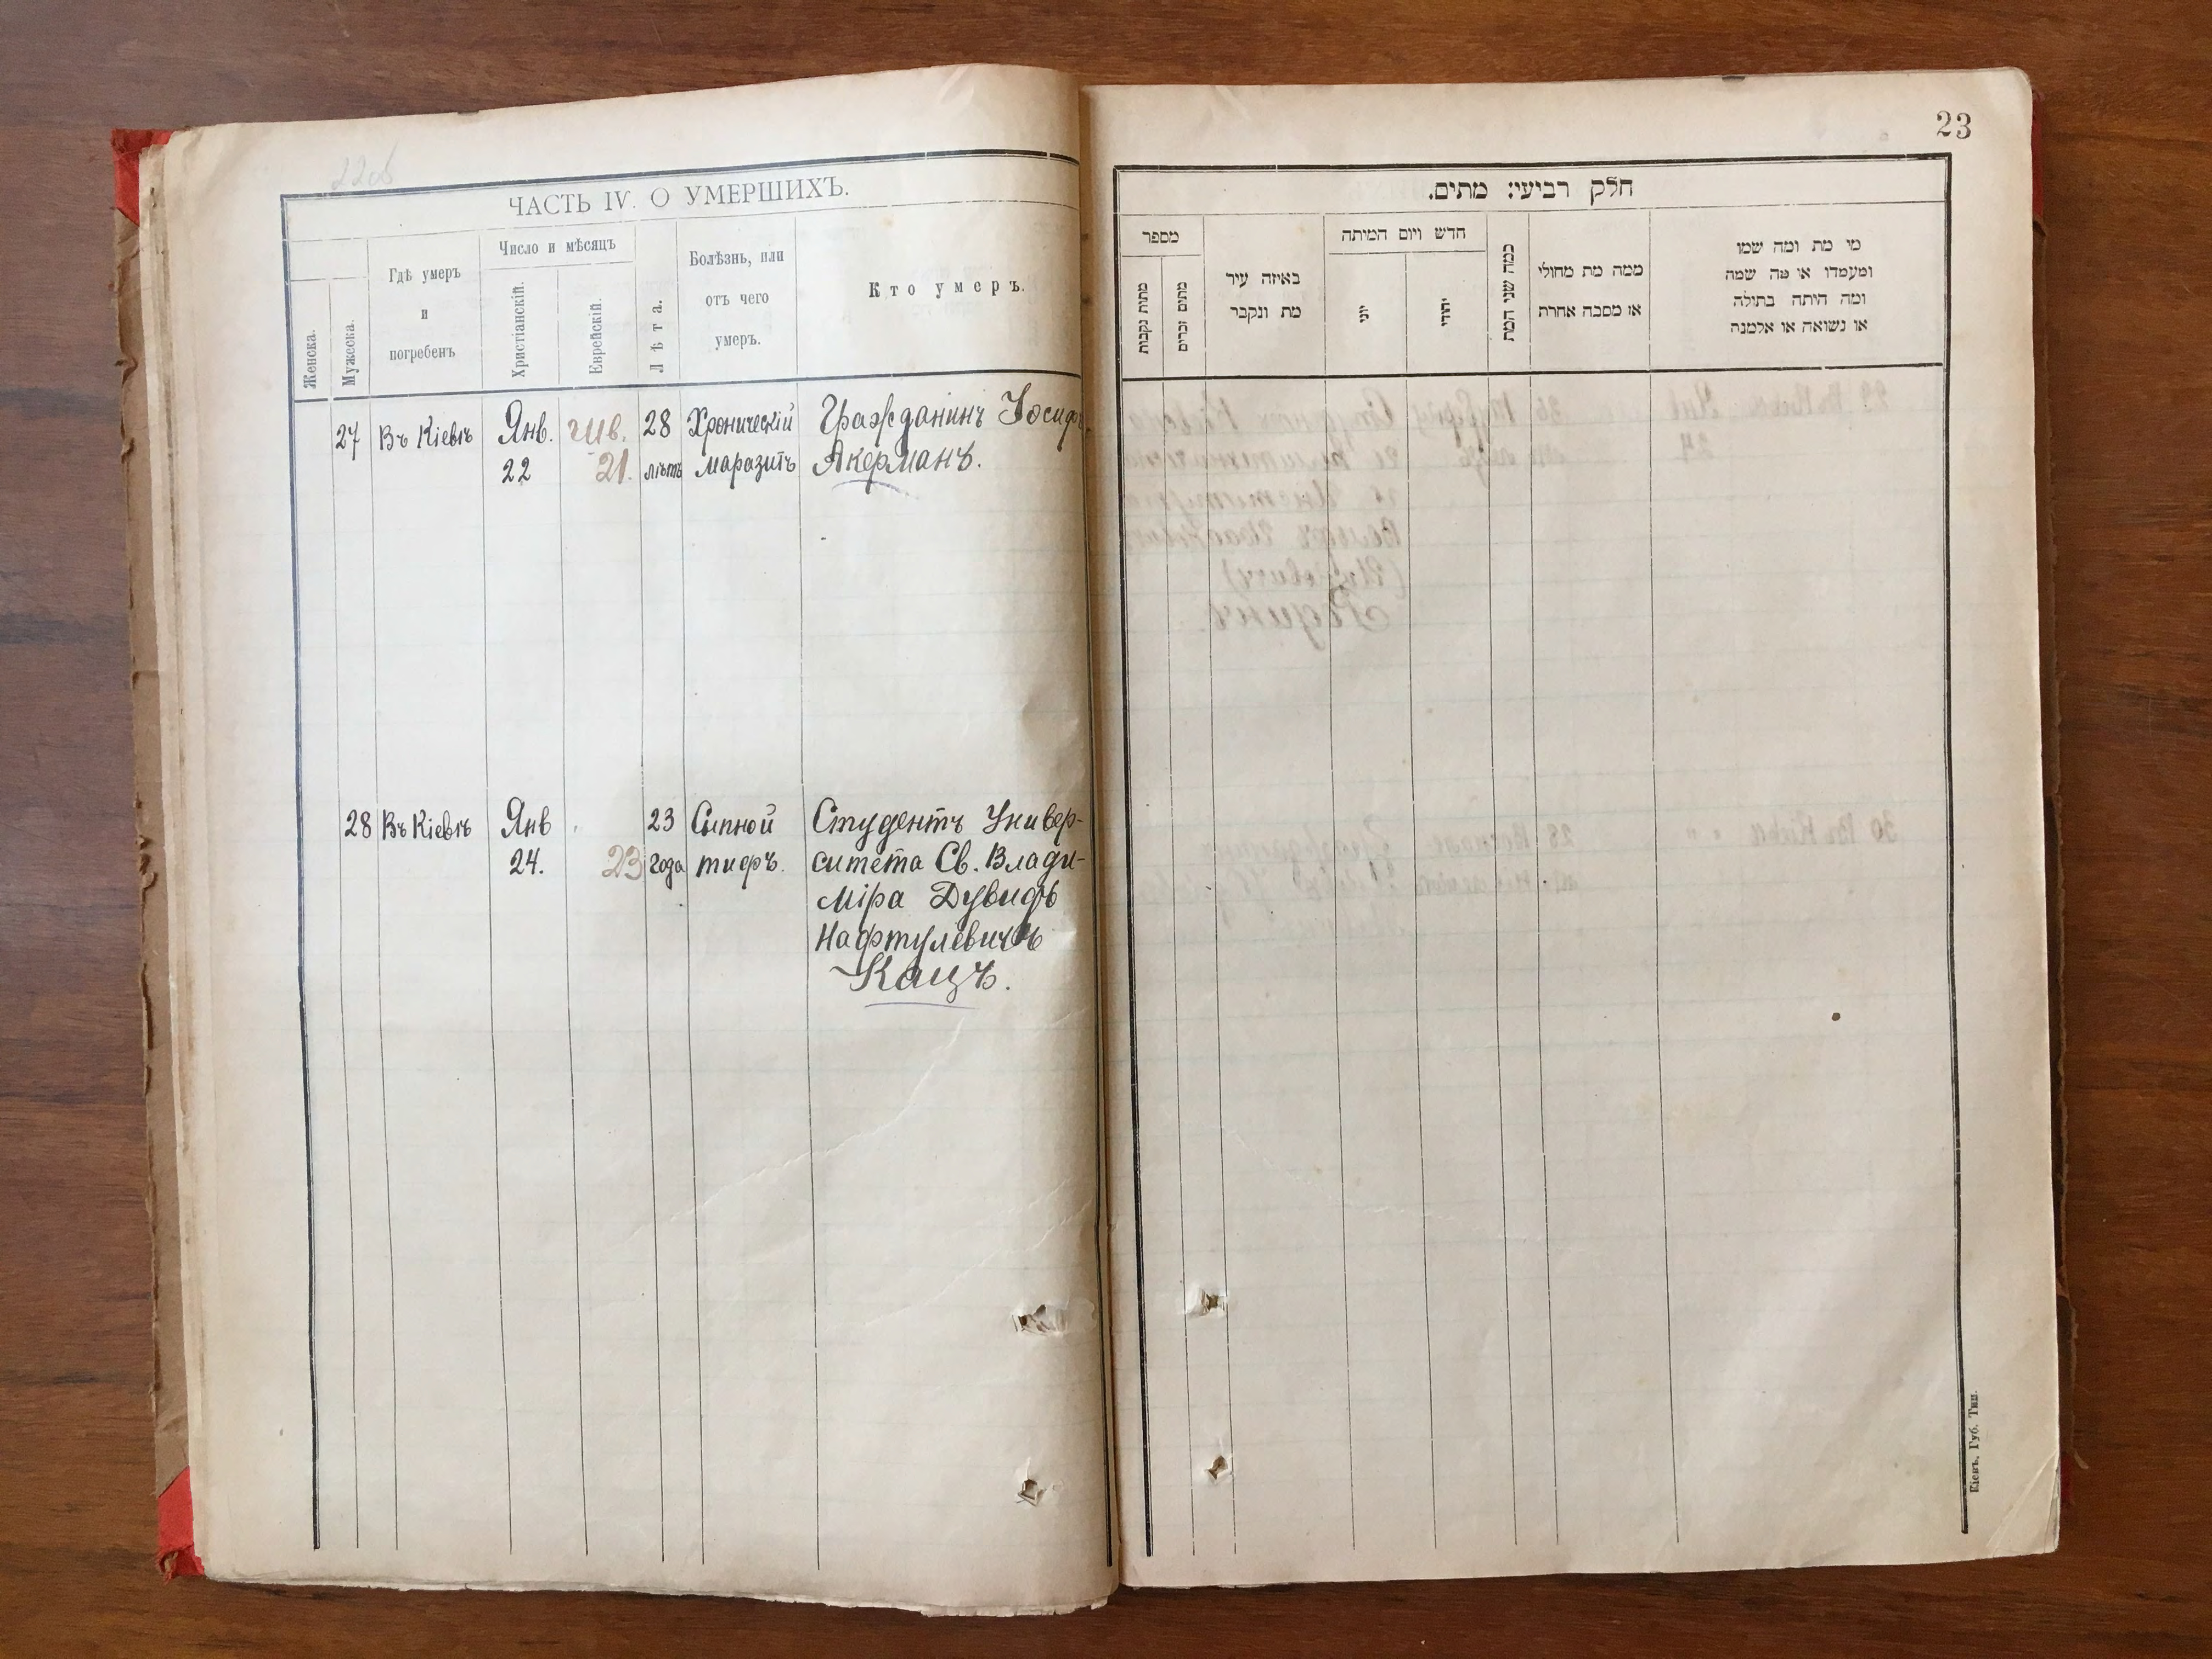 22об
ЧАСТЬ IV. О УМЕРШИХЪ.
Женска.
Мужеска.
Гдѣ умеръ
и
погребенъ
Число и мѣсяцъ
Христіанскій.
Еврейскій.
Лѣта.
Болѣзнь, или
отъ чего
умеръ.
Кто умеръ.
27 Въ Кіевѣ Янв. 28 Хроническій Гражданинъ Іосифъ
22 21. лѣтъ маразитъ Акерманъ.
28 Въ Кіевѣ Янв 23 Сыпной Студентъ Универ-
24. 23 года тифъ. ситета Св. Влади-
міра Дувидъ
Нафтулевичъ
Кацъ.
23
חלק רביעי: מתים.
מספר
מתות נקבות
מתים זכרים
באיזה עיר
מת ונקבר
חדש ויום המיתה
יוני
יהודי
כמה שני המת
ממה מת מחולי
או מסבה אחרת
מי מת ומה שמו
ומעמדו או מה שמה
ומה היתה בתולה
או נשואה או אלמנה
Кіевъ, Губ. Тип.